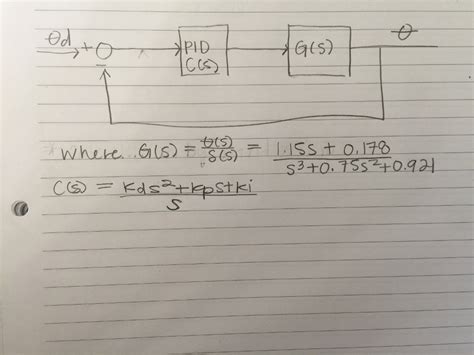 θd + PID G(s) θ
− C(s)
where G(s) = θ(s)/δ(s) = 1.15s + 0.178 / s³+0.75s²+0.921
C(s) = Kds²+kps+ki / s